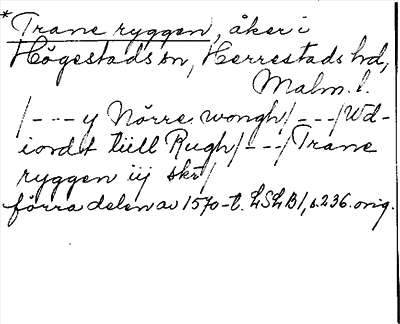 *Trane ryggen, åker i
Högestads sn, Herrestads hd,
Malm. l.
/---y Nörre wongh/---/Wd-
iordt tiill Rugh/---/Trane
ryggen iij skr/
förra delen av 1570-t. LSLB1, s.236. orig.